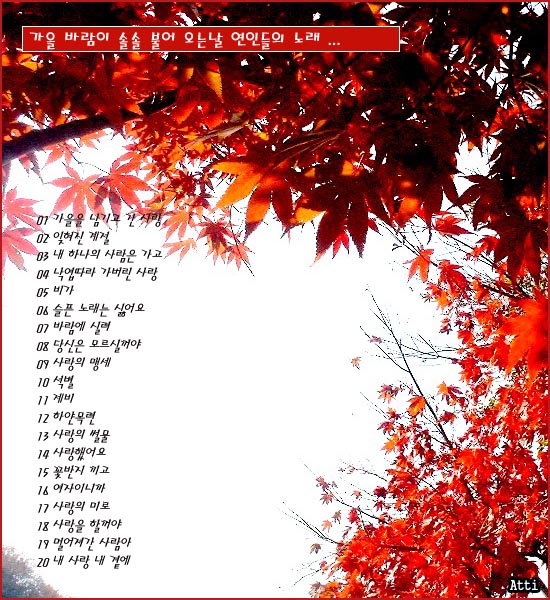 가을 바람이 솔솔 불어 오는날 연인들의 노래 ...
01 가을을 남기고 간 사랑
02 잊혀진 계절
03 내 하나의 사람은 가고
04 낙엽따라 가버린 사랑
05 비가
06 슬픈 노래는 싫어요
07 바람에 실려
08 당신은 모르실꺼야
09 사랑의 맹세
10 석별
11 제비
12 하얀목련
13 사랑의 썰물
14 사랑했어요
15 꽃반지 끼고
16 여자이니까
17 사랑의 미로
18 사랑을 할꺼야
19 멀어져간 사람아
20 내 사랑 내 곁에
Atti